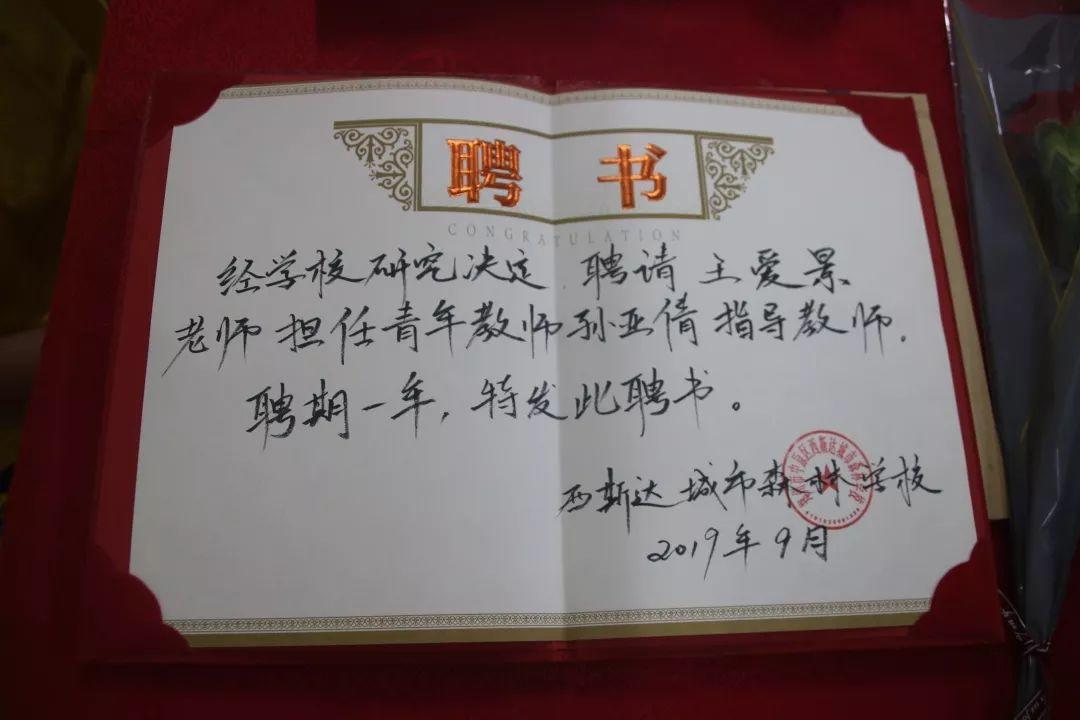 聘 书
CONGRATULATION
经学校研究决定 聘请 王爱景
老师 担任青年教师孙亚倩 指导教师.
聘期一年，特发此聘书。
西斯达 城市森林 学校
2019年9月